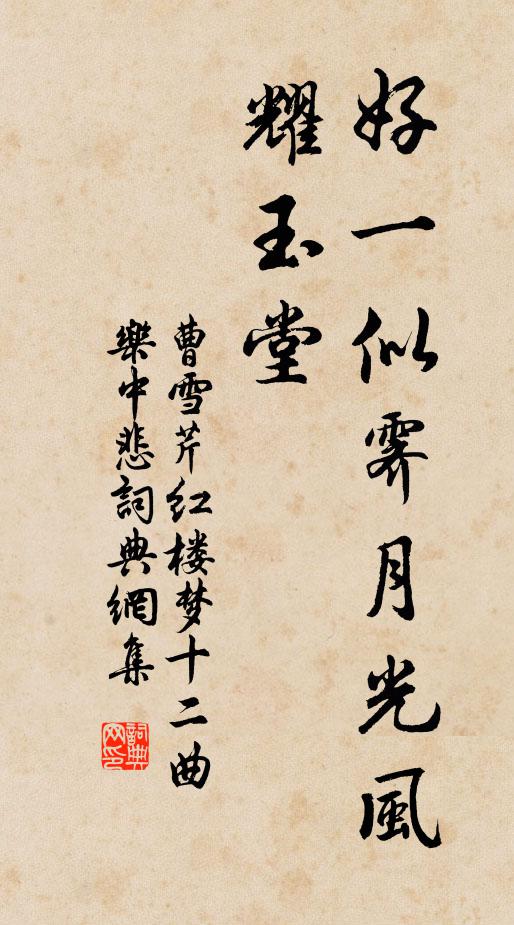 好一似霽月光風
耀玉堂
曹雪芹红楼梦十二曲
樂中悲詞典網集
詞典
网印